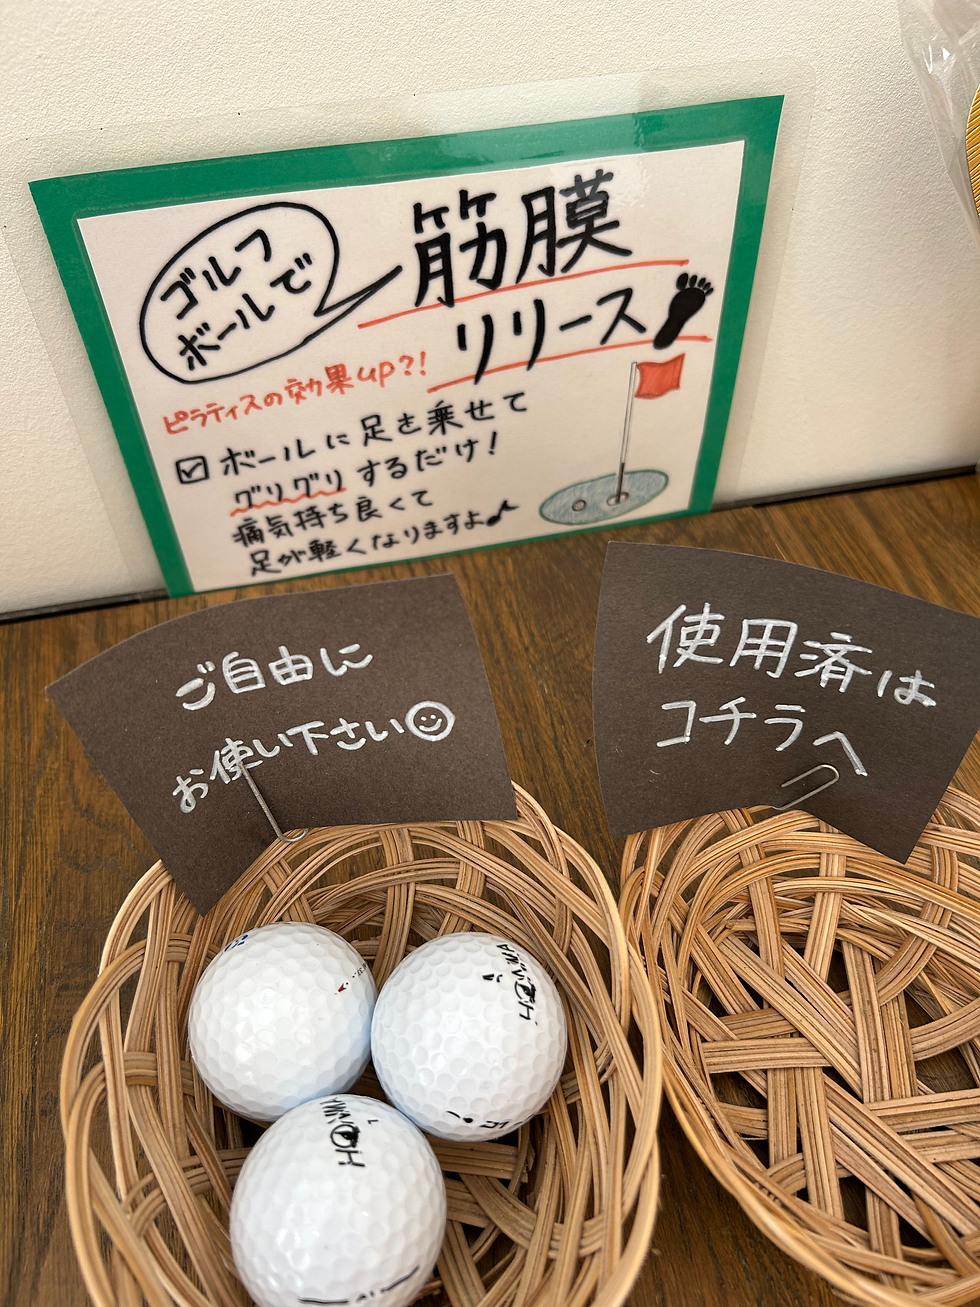 ゴルフ
ボールで
筋膜
リリース
ピラティスの効果up?!
ボールに足を乗せて
グリグリするだけ!
痛気持ち良くて
足が軽くなりますよ♪
ご自由に
お使い下さい
使用済は
コチラへ
HONMA
HONMA